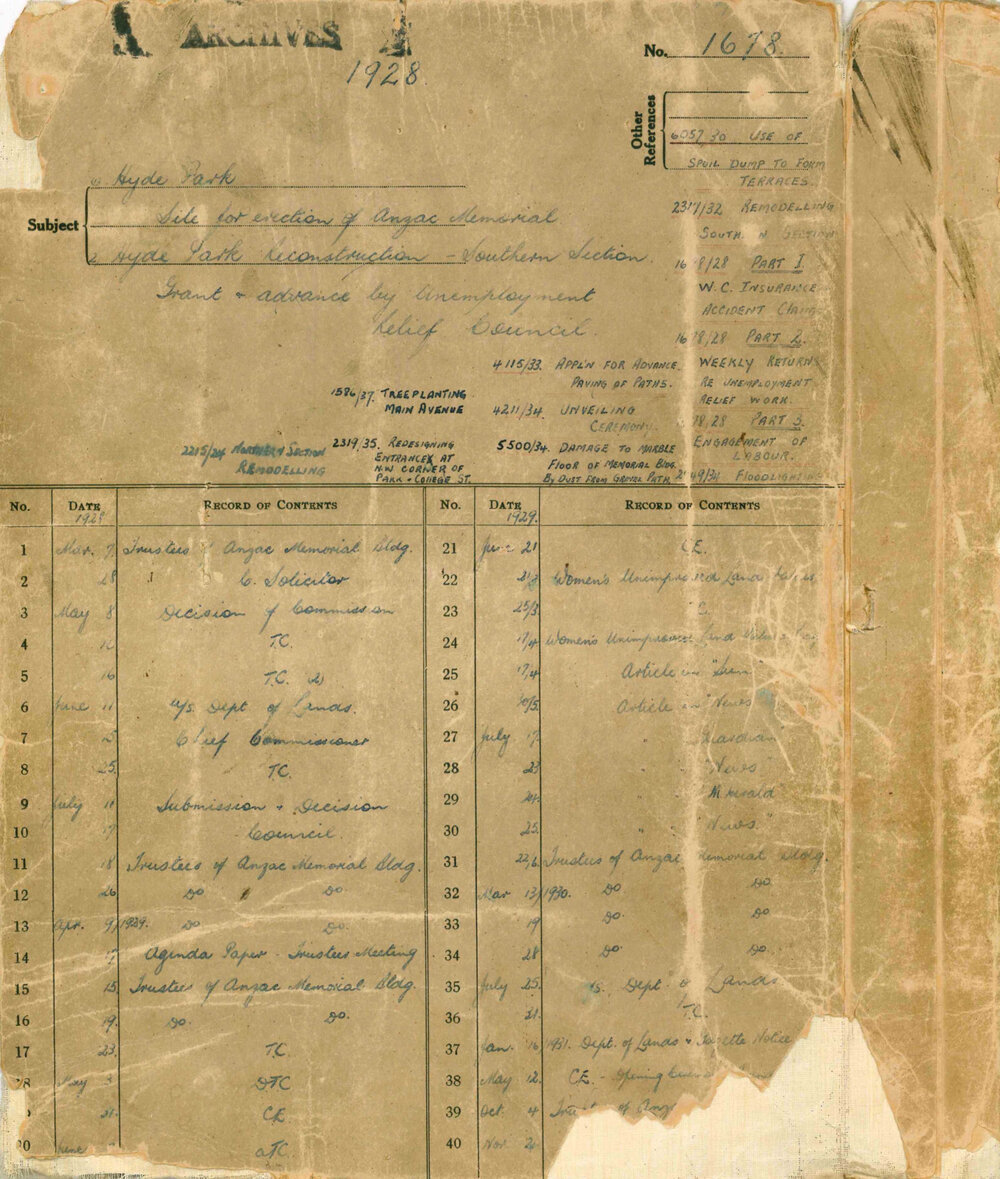 ARCHIVES
1928
No. 1678
Other References
6057/30 USE OF
SPOIL DUMP TO FORM
TERRACES.
2317/32 REMODELLING
SOUTH N SECTION
16 8/28 PART I.
W.C. INSURANCE
ACCIDENT CLAIMS
16 78/28 PART 2.
WEEKLY RETURNS
RE UNEMPLOYMENT
RELIEF WORK.
78/28 PART 3.
ENGAGEMENT OF
LABOUR.
2 49/34 FLOODLIGHTING
Subject
Hyde Park
Site for erection of Anzac Memorial
2 Hyde Park Reconstruction - Southern Section.
Grant & advance by Unemployment
Relief Council.
4115/33. APPL'N FOR ADVANCE
PAVING OF PATHS.
1586/37. TREEPLANTING
MAIN AVENUE
4211/34. UNVEILING
CEREMONY.
2215/24 NORTHERN SECTION
REMODELLING
2319/35. REDESIGNING
ENTRANCEX AT
N.W CORNER OF
PARK & COLLEGE ST.
5500/34. DAMAGE TO MARBLE
FLOOR OF MEMORIAL BLDG.
BY DUST FROM GRAVEL PATH.
No. DATE RECORD OF CONTENTS
1928
1 Mar. 7 Trustees of Anzac Memorial Bldg.
2 28 C. Solicitor
3 May 8 Decision of Commission
4 TC.
5 16 T.C.
6 June 11 U/S. Dept of Lands.
7 Chief Commissioner
8 25. TC.
9 July 11 Submission & Decision
10 17 Council.
11 18 Trustees of Anzac Memorial Bldg.
12 26 Do Do
13 Apr. 9/1929. Do Do.
14 17 Agenda Paper - Trustees Meeting
15 15. Trustees of Anzac Memorial Bldg.
16 19. Do. Do.
17 23. TC.
18 May DTC
31. CE
20 June aTC.
No. DATE RECORD OF CONTENTS
1929.
21 June 21 CE.
22 Women's Unimproved Land
23 25/3
24 17/4 Women's Unimproved Land
25 17/4 Article in "Sun
26 Article in "News"
27 July 17. " Guardian
28 23 " "News"
29 24. " M Herald
30 25. " "News"
31 22/6 Trustees of Anzac Memorial Bldg.
32 Mar 13/1930. Do Do.
33 19 Do. Do
34 28 Do Do.
35 July 25. Dept of Lands
36 21. T.C.
37 Jan. 16/1931. Dept. of Lands & Gazette Notice
38 May 12. CE. - Opening
39 Oct. 4 of Anz
40 Nov